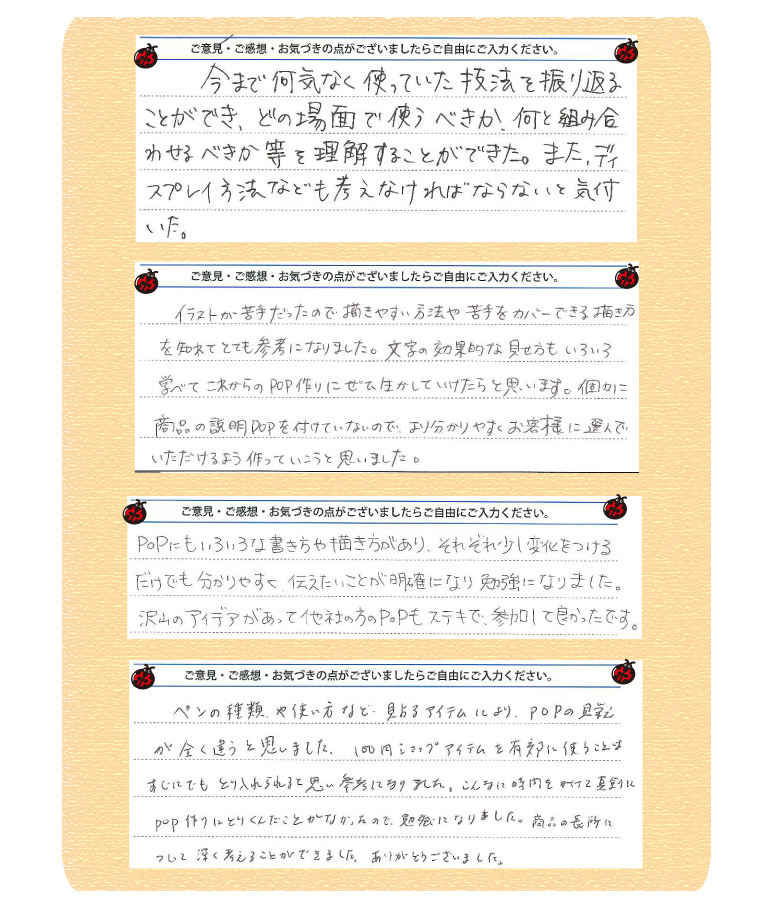 ご意見・ご感想・お気づきの点がございましたらご自由にご入力ください。
今まで何気なく使っていた技法を振り返る
ことができ、どの場面で使うべきか、何と組み合
わせるべきか等を理解することができた。また、ディ
スプレイ方法なども考えなければならないと気付
いた。
ご意見・ご感想・お気づきの点がございましたらご自由にご入力ください。
イラストが苦手だったので描きやすい方法や苦手をカバーできる描き方
を知れてとても参考になりました。文字の効果的な見せ方もいろいろ
学べてこれからのPOP作りにぜひ生かしていけたらと思います。個々に
商品の説明POPを付けていないので、より分かりやすくお客様に選んで
いただけるよう作っていこうと思いました。
ご意見・ご感想・お気づきの点がございましたらご自由にご入力ください。
POPにもいろいろな書き方や描き方があり、それぞれ少し変化をつける
だけでも分かりやすく、伝えたいことが明確になり勉強になりました。
沢山のアイデアがあって他社の方のPOPもステキで、参加して良かったです。
ご意見・ご感想・お気づきの点がございましたらご自由にご入力ください。
ペンの種類や使い方など、貼るアイテムにより、POPの見栄え
が全く違うと思いました。100円ショップアイテムを有効に使うことは
すぐにでもとり入れられると思い参考になりました。こんなに時間をかけて真剣に
POP作りにとりくんだことがなかったので、勉強になりました。商品の長所に
ついて深く考えることができました。ありがとうございました。